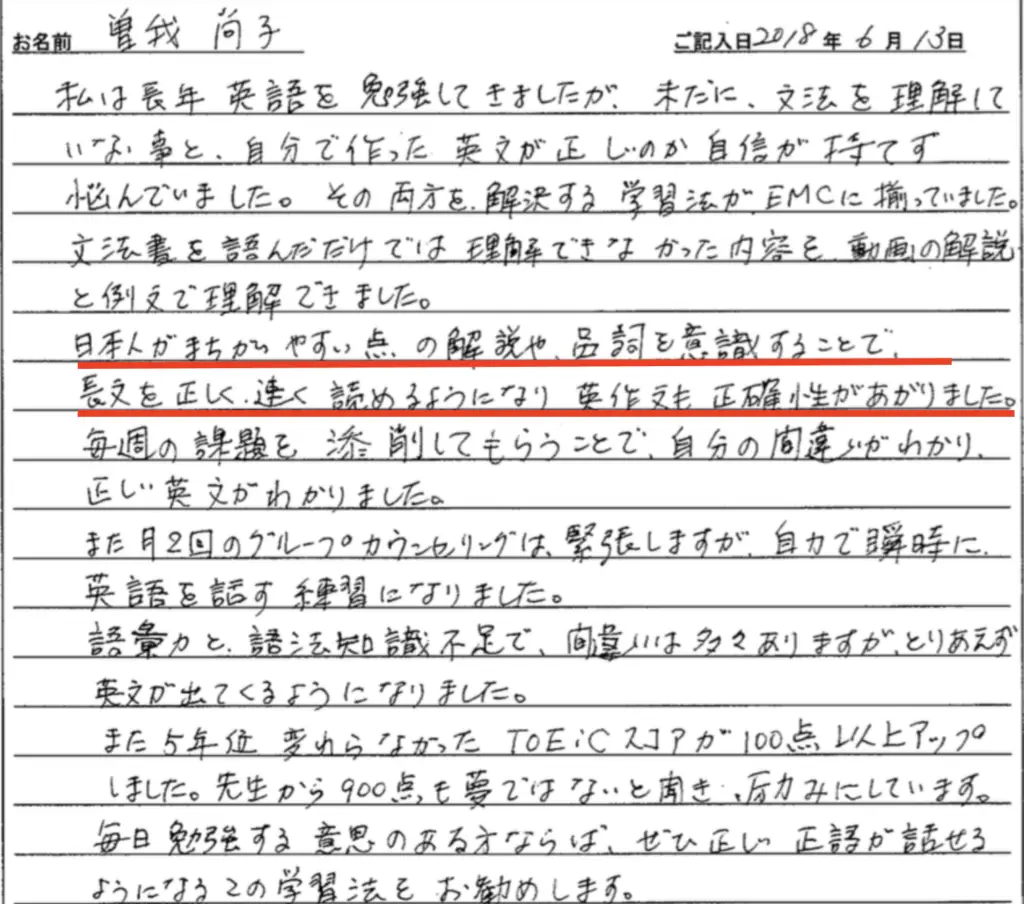 お名前 曽我 尚子 ご記入日 2018年 6月 13日
私は長年 英語を 勉強してきましたが、未だに、文法を理解して
いない事と、自分で作った 英文が正しいのか自信が 持てず
悩んでいました。その 両方を、解決する 学習法が EMCに揃っていました。
文法書を 語んだだけでは 理解できなかった内容を、動画の解説
と例文で理解できました。
日本人がまちがいやすい点 の解説や、品詞を意識することで、
長文を正しく、速く 読めるようになり 英作文も 正確性があがりました。
毎週の課題を 添削してもらうことで、自分の間違いがわかり、
正しい英文がわかりました。
また月2回のグループカウンセリングは、緊張しますが、自力で瞬時に、
英語を話す 練習になりました。
語彙力と、語法知識不足で、間違いは多々ありますが、とりあえず
英文が出てくるようになりました。
また5年位 変わらなかった TOEiCスコアが100点以上アップ
しました。先生から900点も夢ではないと聞き、励みにしています。
毎日勉強する 意思のある方ならば、ぜひ正しい 正語が話せる
ようになるこの学習法を お勧めします。